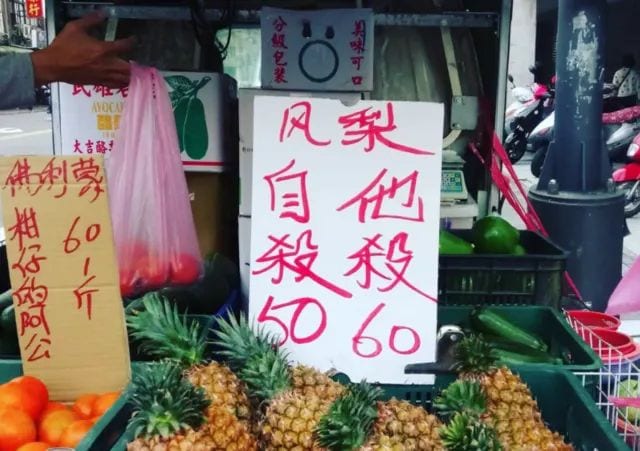 分級包裝
美味可口
AVOCA
大吉酪
风梨
自殺
50
他殺
60
佛利蒙
柑仔的阿公
60
1斤